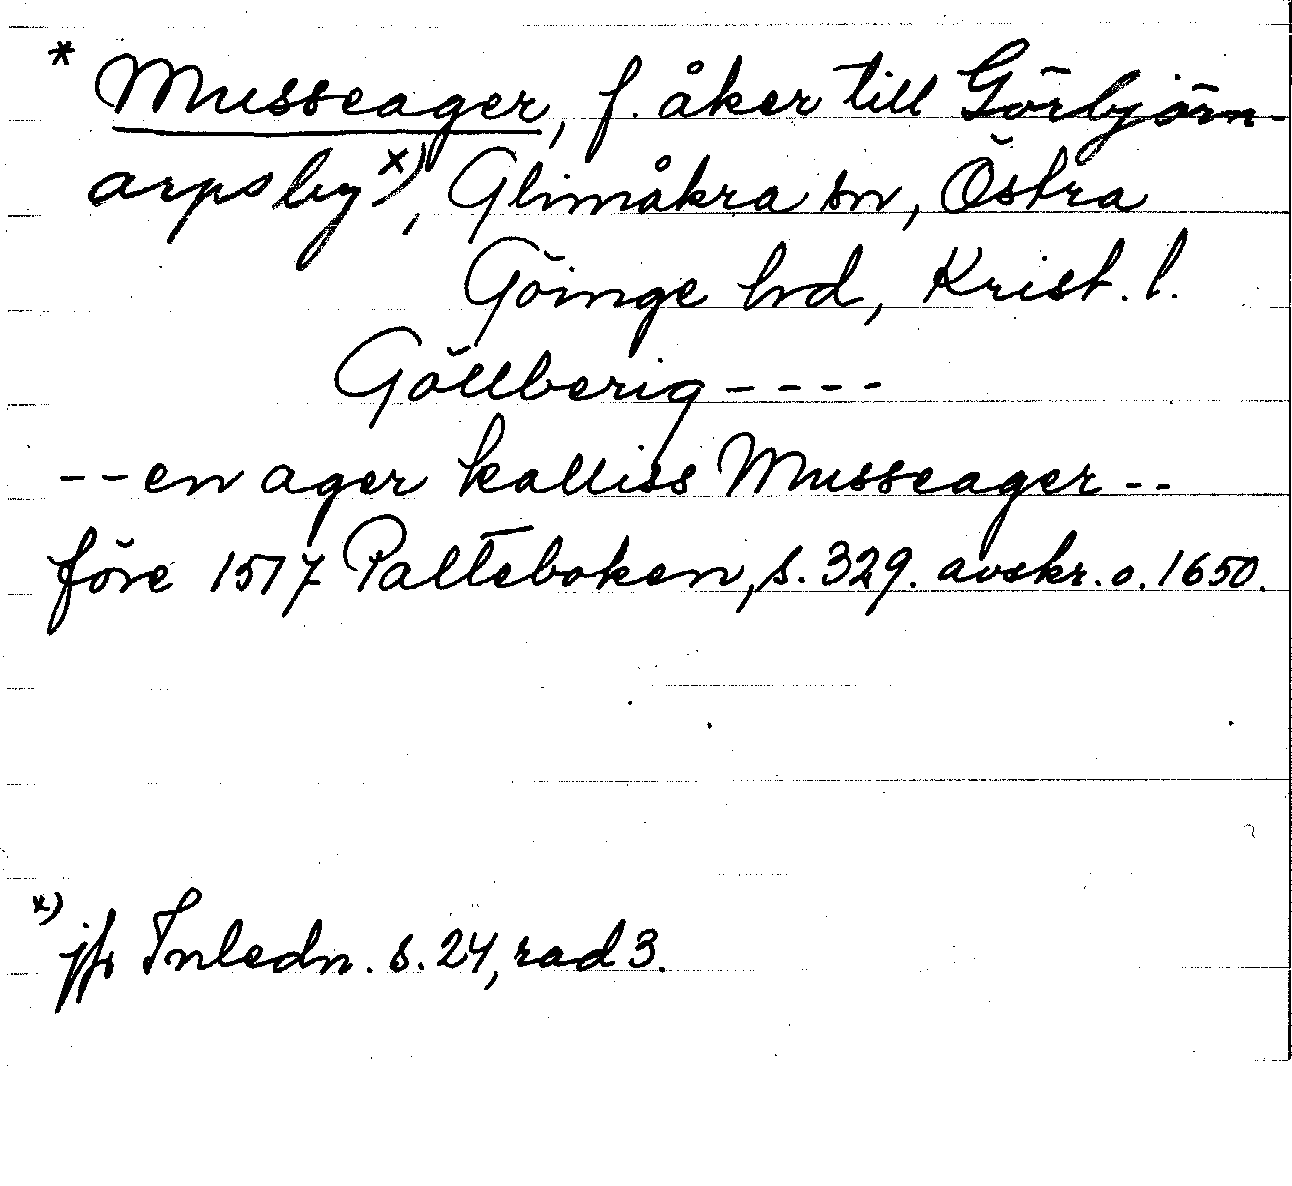 * Musseager, f. åker till Görbjörn-
arpsby x), Glimåkra sn, Östra
Göinge hd, Krist. l.
Göllberig ----
-- en ager kalliss Musseager --
före 1517 Palteboken, s. 329. avskr. o. 1650.
x) jfr Inledn. s. 24, rad 3.